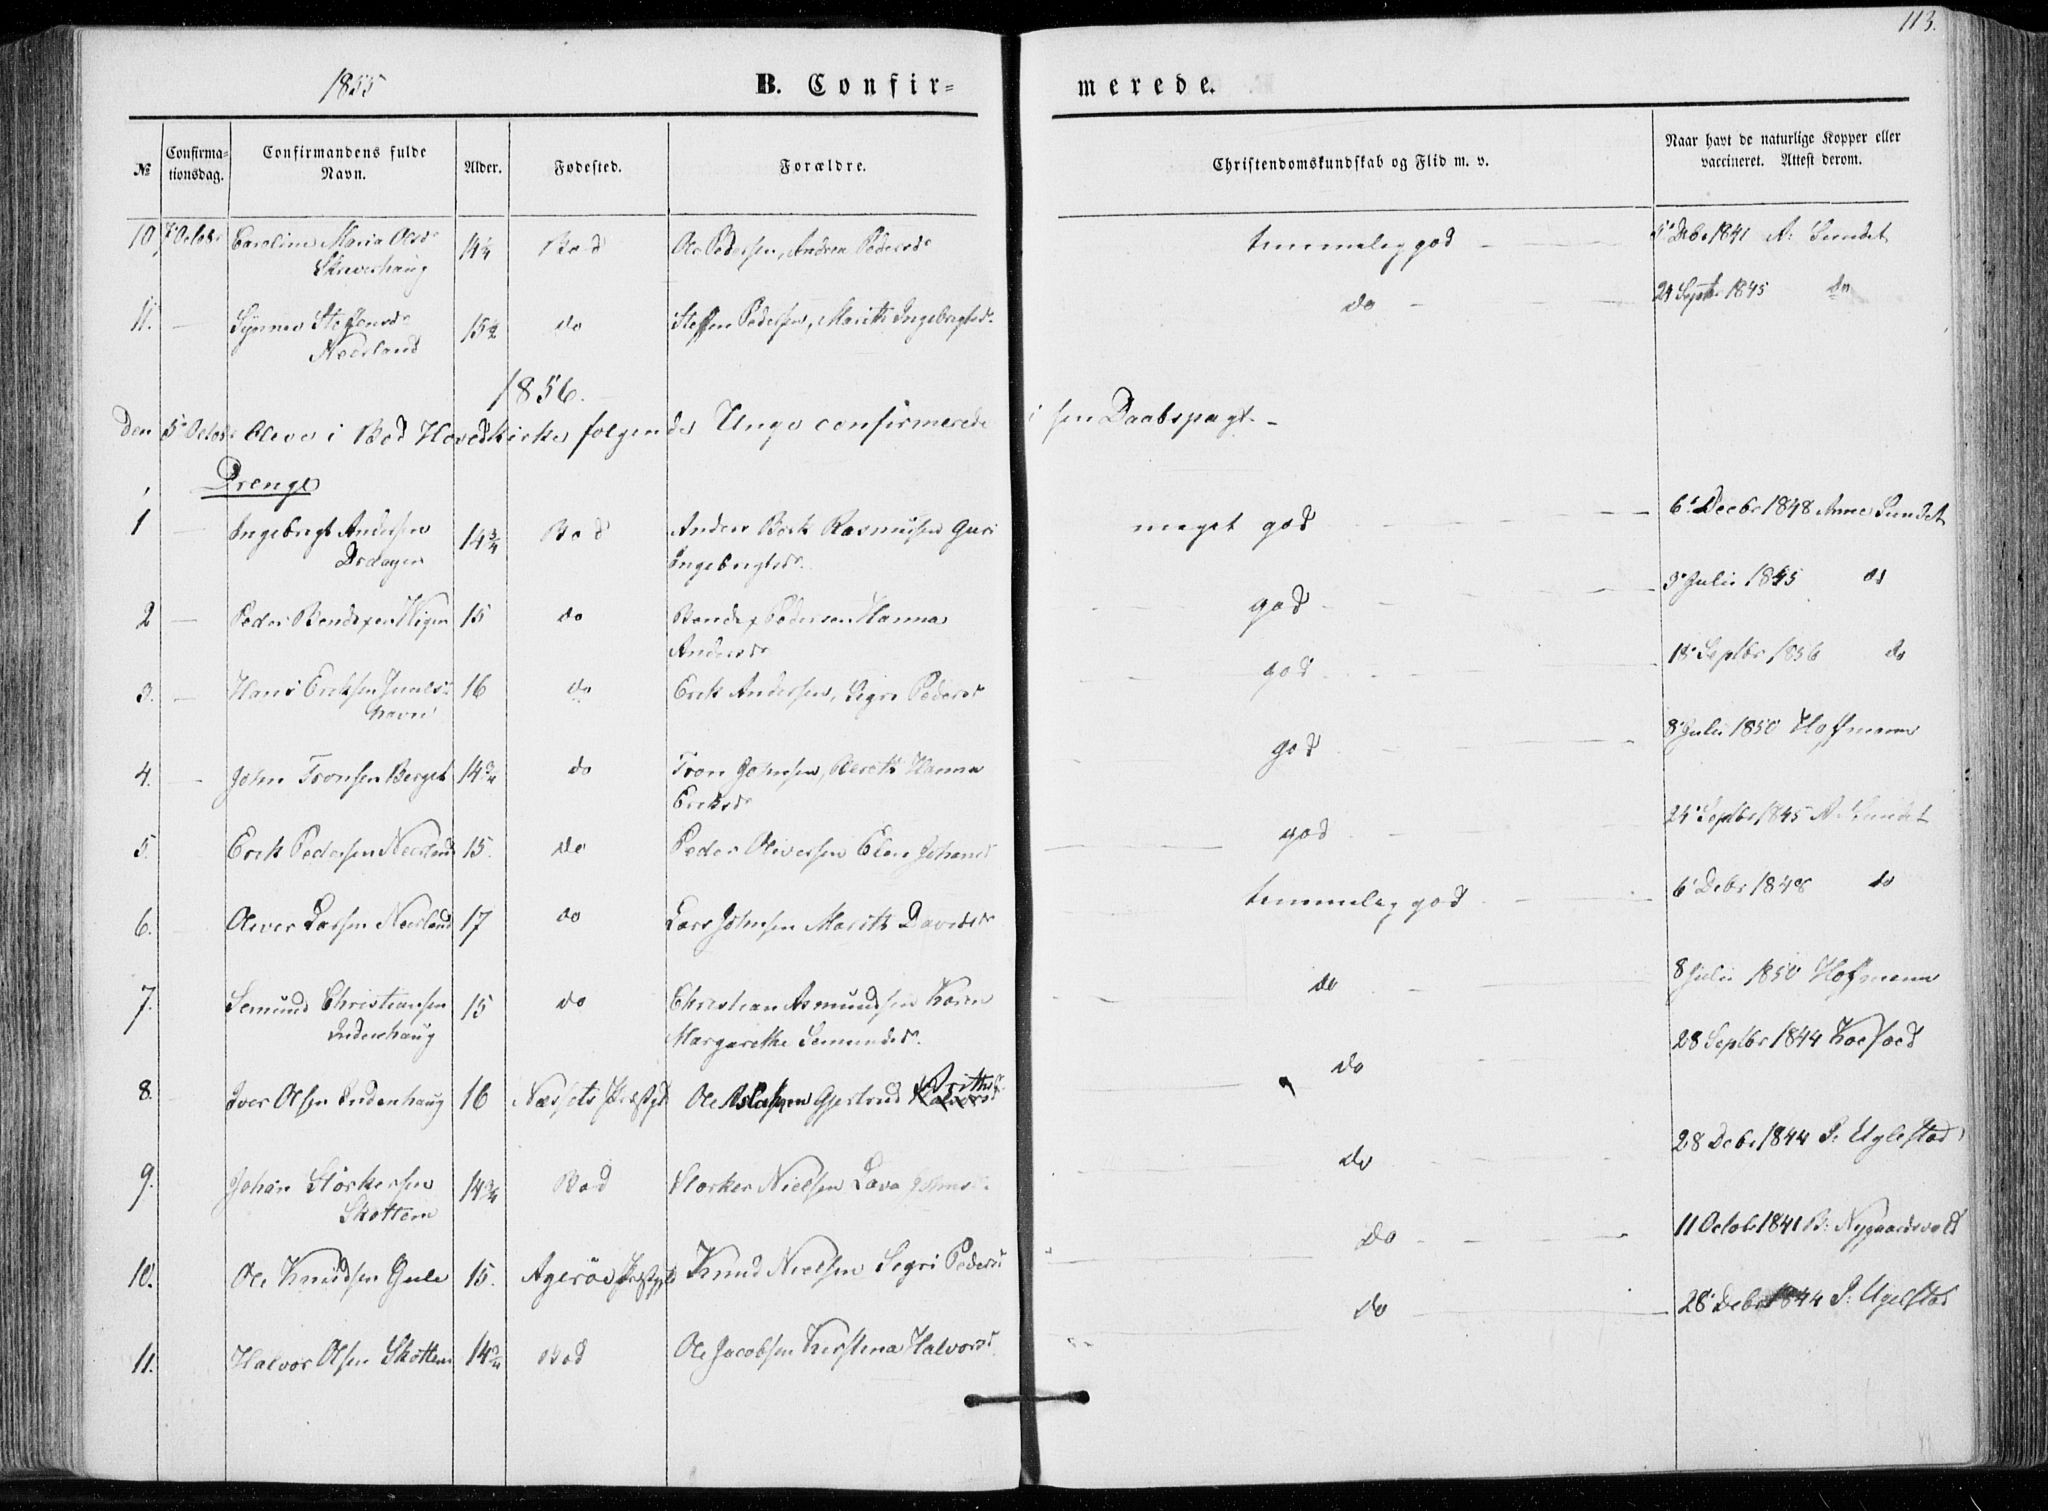 113.
1855
B. Confir-
merede.
No
Confirma-
tionsdag.
Confirmandens fulde
Navn.
Alder.
Fødested.
Forældre.
Christendomskundskab og Flid m. v.
Naar havt de naturlige Kopper eller
vaccineret. Attest derom.
10. 7 Octobr Caroline Maria Olsdr 14¼ Bod Ole Pedersen, Andrea Pedersdr temmelig god 5' Debr 1841 A: Sundet
11. Synneve Steffensdr 15½ do Steffen Pedersen, Marith Ingebrigtsdr do 24 Septbr 1845 do
Neerland
1856.
Den 5' Octobr bleve i Bod Hovedkirke følgende Unge confirmerede i sin Daabspagt.
Drenge
1 Ingebrigt Andersen 14¾ Bod Anders Beck Rasmusen Guri meget god 6' Decbr 1848 Anne Sundet
Ingebrigtsdr
2 Peder Bendixen 15 do Bendix Pedersen Hanna god 3' Julii 1845 do
Andersdr
3. Hans Eriksen 16 do Erik Andersen, Sigri Pedersdr god 18' Septbr 1856 do
4. John Tronsen Berget 14¾ do Tron Johnsen, Bereth Hanna god 8' Julii 1850 Hoffmann
Eriksdr
5. Erik Pedersen Neerland 15. do Peder Oliversen Elen Johansd god 24' Septbr 1845 A Sundet
6. Oliver Larsen Neerland 17 do Lars Johnsen Marith Davidsdr temmelig god 6' Debr 1848 do
7. Semund Christiansen 15 do Christian Asmundsen Karen do 8 Julii 1850 Hoffmann
Indenhaug Margarethe Semundsdr.
8. Iver Olsen Indenhaug 16 Nessets Præstgd Ole Aslaksen Gjertrud do 28 Septbr 1844 Koefoed
9. Johan Størkersen 14¾ Bod Størker Nielsen Lava Johnsd. do 28 Debr 1844 P. Uglestad
Skottem
10. Ole Knudsen Gule 15. Agerøe Præstgjld Knud Nielsen Segri Pedersd do 11 Octobr 1841 B: Nygaardsvold
11. Halvor Olsen Skottem 14¾ Bod Ole Jacobsen Kirstina Halvorsd do 28' Debr 1844 P: Ugelstad